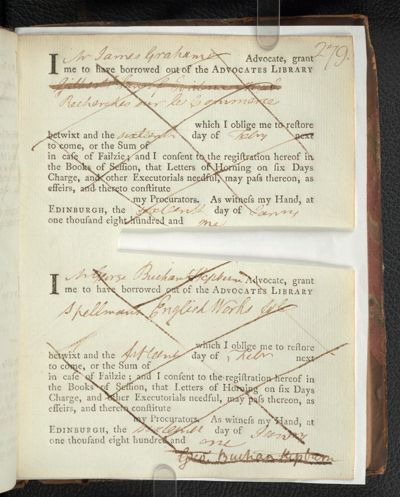 279.
I Mr James Grahame Advocate, grant
me to have borrowed out of the ADVOCATES LIBRARY
Recherches sur le Commerce
which I oblige me to restore
betwixt and the sixteenth day of Febry next
to come, or the Sum of
in case of Failzie; and I consent to the registration hereof in
the Books of Session, that Letters of Horning on six Days
Charge, and other Executorials needful, may pass thereon, as
effeirs, and thereto constitute
my Procurators. As witness my Hand, at
EDINBURGH, the day of Janry
one thousand eight hundred and one
I Mr George Buchan Hepburn Advocate, grant
me to have borrowed out of the ADVOCATES LIBRARY
Spellmans English Works
which I oblige me to restore
betwixt and the day of Febry next
to come, or the Sum of
in case of Failzie; and I consent to the registration hereof in
the Books of Session, that Letters of Horning on six Days
Charge, and other Executorials needful, may pass thereon, as
effeirs, and therein constitute
my Procurators. As witness my Hand, at
EDINBURGH, the day of Janry
one thousand eight hundred and one
Geo. Buchan Hepburn